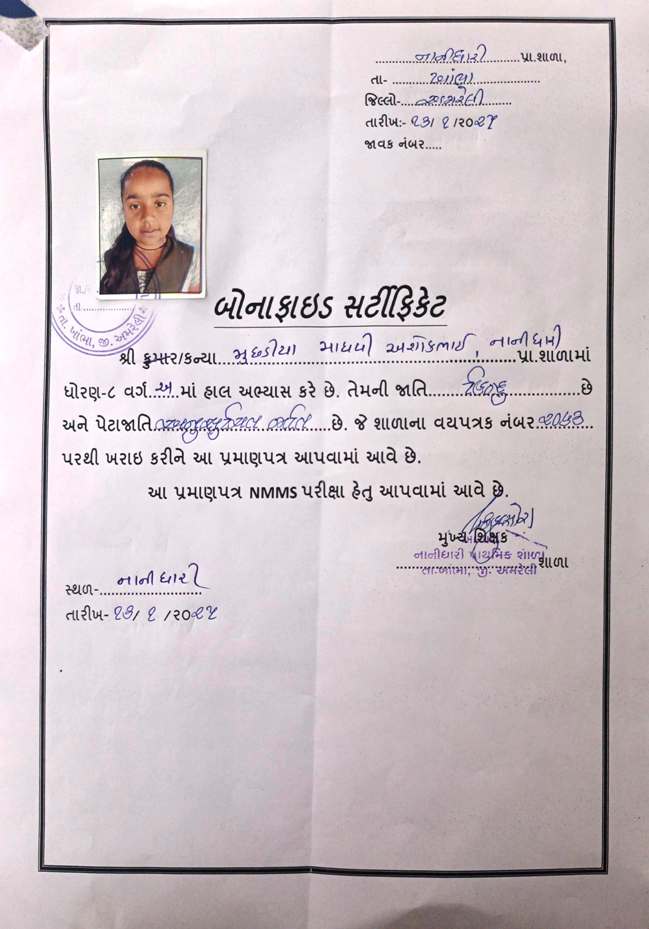 નાનીધારી પ્રા.શાળા,
તા- ખાંભા
જિલ્લો- અમરેલી
તારીખ:- ૨૩/૧/૨૦૨૫
જાવક નંબર.....
તા. ખાંભા, જી. અમરેલી
બોનાફાઇડ સર્ટીફિકેટ
શ્રી કુમાર/કન્યા મુછડીયા માધવી અશોકભાઈ, નાનીધારી પ્રા.શાળામાં
ધોરણ-૮ વર્ગ અ માં હાલ અભ્યાસ કરે છે. તેમની જાતિ હિન્દુ છે
અને પેટાજાતિ અનુસુચિત જાતિ છે. જે શાળાના વયપત્રક નંબર
પરથી ખરાઇ કરીને આ પ્રમાણપત્ર આપવામાં આવે છે.
આ પ્રમાણપત્ર NMMS પરીક્ષા હેતુ આપવામાં આવે છે.
મુખ્ય શિક્ષક
નાનીધારી પ્રાથમિક શાળા
શાળા
તા.ખાંભા, જી. અમરેલી
સ્થળ- નાનીધારી
તારીખ- ૨૩/૧/૨૦૨૫